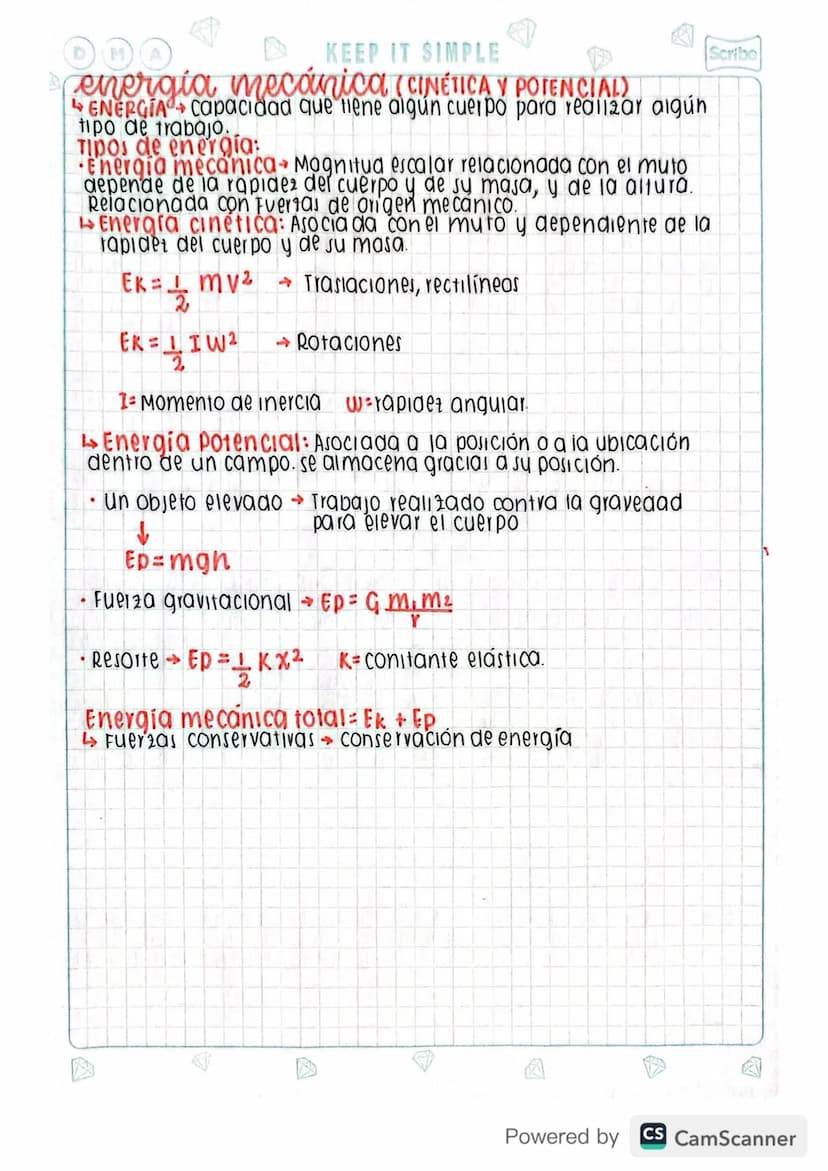 D M A
KEEP IT SIMPLE
Scribe
energía mecánica (CINÉTICA Y POTENCIAL)
↳ ENERGÍA → capacidad que tiene algún cuerpo para realizar algún
tipo de trabajo.
Tipos de energía:
· Energía mecánica → Magnitud escalar relacionada con el muto
depende de la rapidez del cuerpo y de su masa, y de la altura.
Relacionada con fuerzas de origen mecánico.
↳ Energía cinética: Asociada con el muto y dependiente de la
rapidez del cuerpo y de su masa.
Ek = 1/2 mv² → Traslaciones, rectilíneos
Ek = 1/2 I W² → Rotaciones
I = Momento de inercia W = rapidez angular.
↳ Energía Potencial: Asociada a la posición o a la ubicación
dentro de un campo. se almacena gracias a su posición.
· Un objeto elevado → Trabajo realizado contra la gravedad
para elevar el cuerpo
↓
Ep = mgh
· Fuerza gravitacional → Ep = G m₁m₂/r
· Resorte → Ep = 1/2 Kx² K = constante elástica.
Energía mecánica total = Ek + Ep
↳ Fuerzas conservativas → conservación de energía
Powered by CS CamScanner